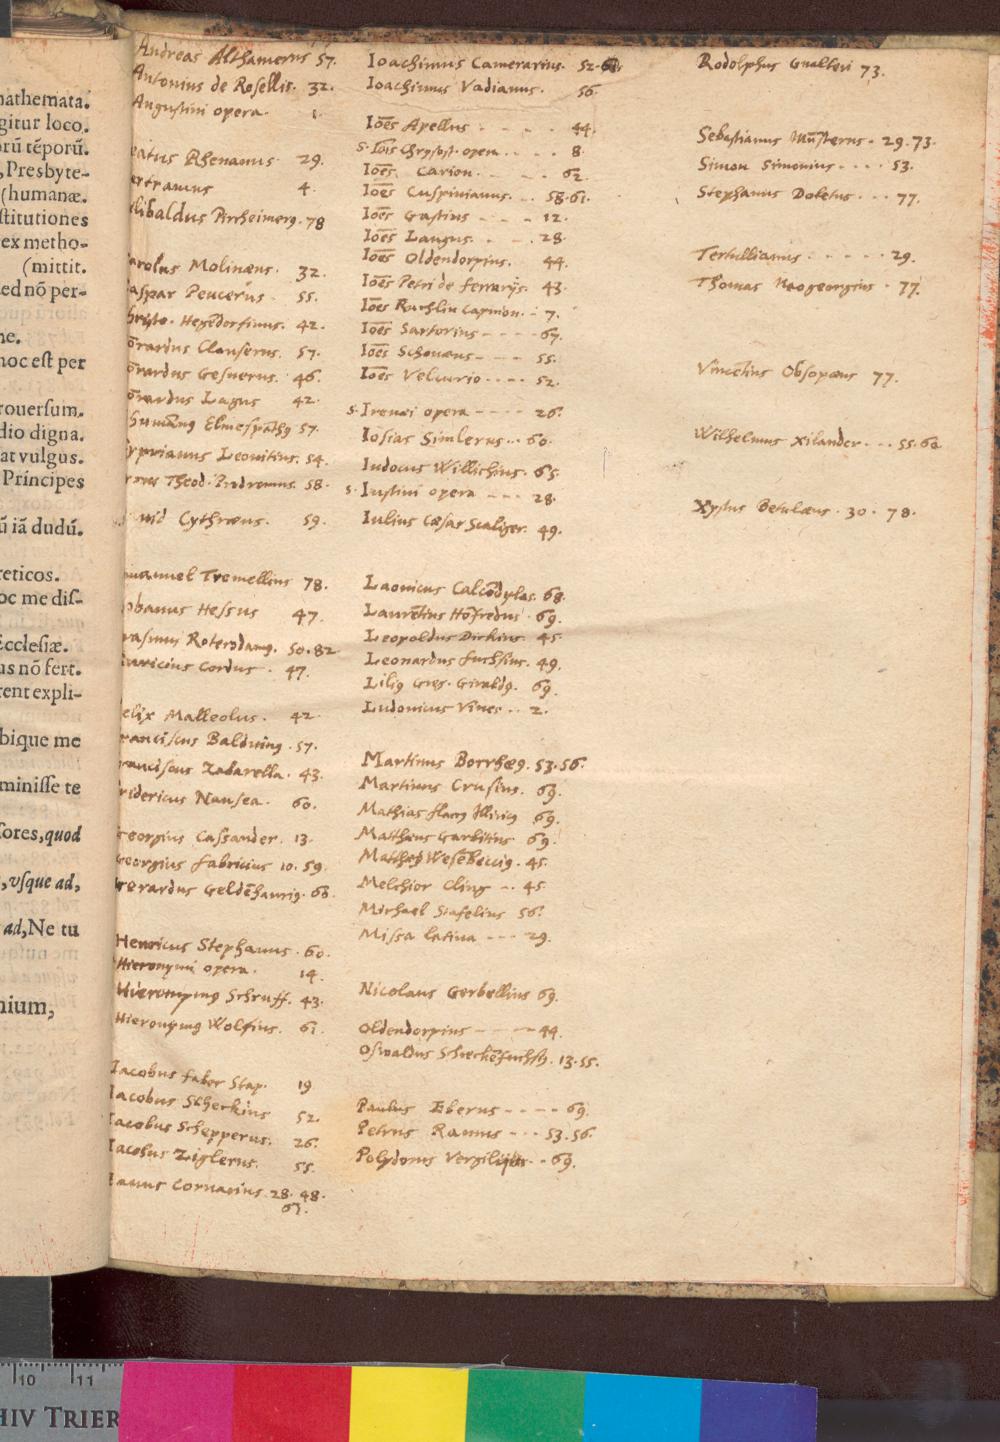 mathemata.
gitur loco.
orũ tẽporũ.
Presbyte-
(humanæ.
stitutiones
ex metho-
(mittit.
ed nõ per-
ne.
hoc est per
rouersum.
dio digna.
at vulgus.
Príncipes
ũ iã dudũ.
reticos.
oc me dis-
Ecclesiæ.
us nõ fert.
rent expli-
bique me
minisse te
sores, quod
, vsque ad,
ad, Ne tu
nium,
Andreas Althamerus 57.
Antonius de Rosellis. 32.
Augustini opera. 1.
eatus Rhenanus 29.
ertramus 4.
libaldus Pirrheimerꝰ. 78
arolus Molinæus. 32.
aspar Peucerus. 55.
hristo. Hegẽdorfinus. 42.
õrardus Clauserus. 57.
õrardus Gesnerus. 46.
õrardus Lagus 42.
57.
yprianus Leouitius. 54.
Theod. Prodromus. 58.
uid Cythræus. 59.
manuel Tremellius 78.
obanus Hessus 47.
rasmus Roterodamꝰ. 50.82
uricius Cordus. 47.
elix Malleolus. 42.
ranciscus Balduinꝰ. 57.
ranciscus Zabarella. 43.
ridericus Nausea. 60.
Georgius Cassander. 13.
Georgius Fabricius 10. 59.
Gerardus Geldẽhauriꝰ. 68.
Henricus Stephanus. 60.
Hieronymi opera. 14.
Hieronymꝰ Schruff. 43.
Hieronymꝰ Wolfius. 61.
Iacobus faber Stap. 19
Iacobus Scherkius 52.
Iacobus Schepperus. 26.
Iacobus Ziglerus. 55.
Ianus Cornarius. 28. 48.
61.
Ioachimus Camerarius. 52.
Ioachimus Vadianus. 56.
Ioẽs Apellus . - . - . 44.
S. Ioĩs Chrysost. opera . . . . 8.
Ioẽs. Carion. . - . 62.
Ioẽs Cuspinianus. . . 58.61.
Ioẽs Gastius - - - 12.
Ioẽs Langus. . - . 28.
Ioẽs Oldendorpius. . 44.
Ioẽs Petri de Ferrarijs. 43.
Ioẽs Ruchlin Capnion. - 7.
Ioẽs Sartorius - - - - 67.
Ioẽs Schonæus - - - 55.
Ioẽs Velcurio . . . . 52.
S. Irenæi opera - - - - 26.
Iosias Simlerus. . . 60.
Iudocus Willichius. 65.
S. Iustini opera - - - 28.
Iulius Cæsar Scaliger. 49.
Laonicus Calcõdylas. 68.
Laurẽtius Hõfredus. 69.
Leopoldus Dickius. 45.
Leonardus Fuchsius. 49.
Liliꝰ Greg. Giraldꝰ. 69.
Ludouicus Viues . . 2.
Martinus Borrhæꝰ. 53.56.
Martinus Crusius. 69.
Mathias flacꝰ Illiriꝰ 69.
Matthæus Garbitius 69.
Matthæꝰ Wesẽbeciꝰ. 45.
Melchior Cling - . 45.
Michael Stifelius 56.
Missa latina - - - 29.
Nicolaus Gerbellius 69.
Oldendorpius - - - - 44.
Oswaldus Schreckẽfuchsꝰ. 13.55.
Paulus Eberus - - - - 69.
Petrus Ramus - - - 53.56.
Polydorus Vergilius - - 69.
Rodolphus Gualteri 73.
Sebastianus Mũsterus. 29.73.
Simon Simonius - . . . 53.
Stephanus Doletus . . . 77.
Tertullianus . . . . . 29.
Thomas Naogeorgius . 77.
Vincẽtius Obsopæus 77.
Wilhelmus Xilander . . . 55.62
Xystus Betulæus . 30. 78.
10 11
HIV TRIER